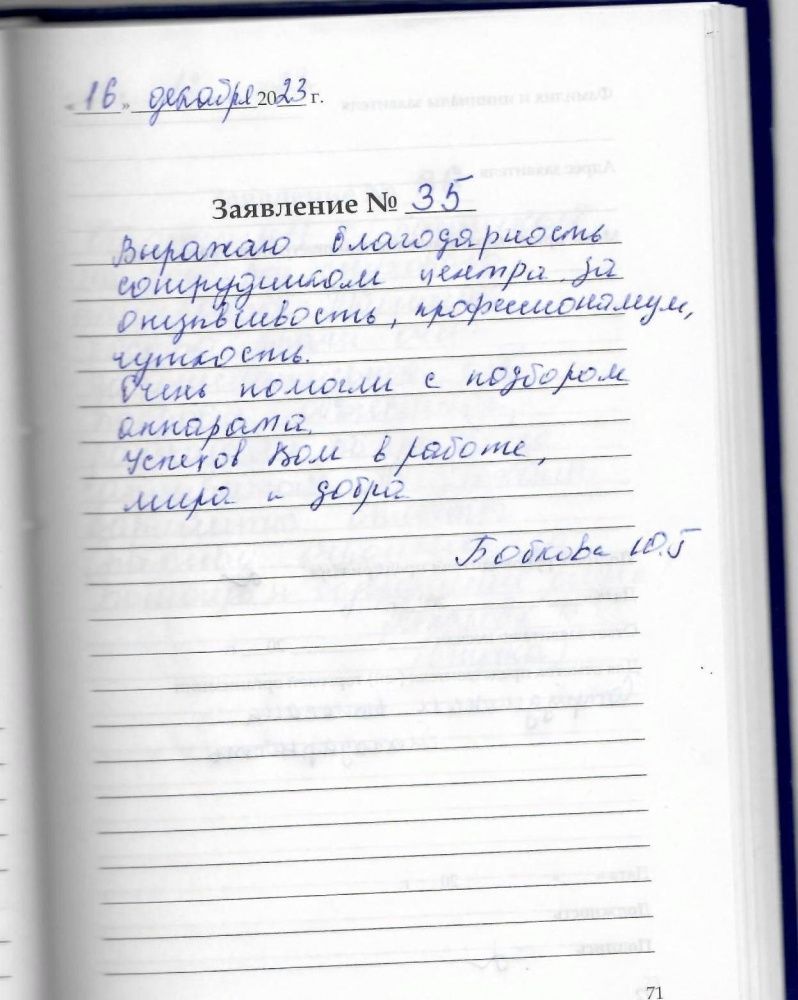 « 16 » декабря 2023 г.
Заявление № 35
Выражаю благодарность
сотрудникам центра за
отзывчивость, профессионализм,
чуткость.
Очень помогли с подбором
аппарата.
Успехов Вам в работе,
мира и добра
Бобкова Ю.Г
71